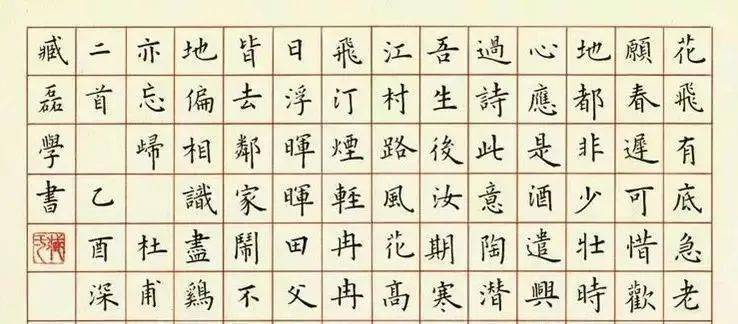 花飛有底急老
願春遲可惜歡
地都非少壯時
心應是酒遣興
過詩此意陶潛
吾生後汝期寒
江村路風花高
飛汀煙輕冉冉
日浮暉暉田父
皆去鄰家鬧不
地偏相識盡鷄
亦忘歸 杜甫
二首 乙酉深
臧磊學書